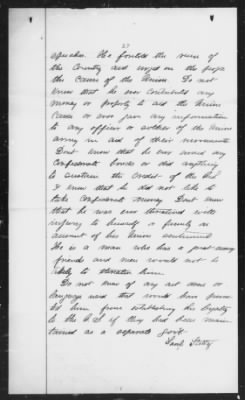 27
speeches. He foretold the ruin of
the Country and urged on the people
the cause of the Union. Do not
know that he ever contributed any
money or property to aid the Union
cause or ever gave any information
to any officer or soldier of the Union
army in aid of their movements
Dont know that he ever owned any
Confederate bonds or did anything
to sustain the credit of the C.S.
I know that he did not like to
take Confederate money. Dont know
that he was ever threatened with
injury to himself or family on
account of his Union sentiments
He is a man who has a great many
friends and men would not be
likely to threaten him.
Do not know of any act done or
language used that would have prevented
him from establishing his loyalty
to the C.S. if they had been main
tained as a separate govt